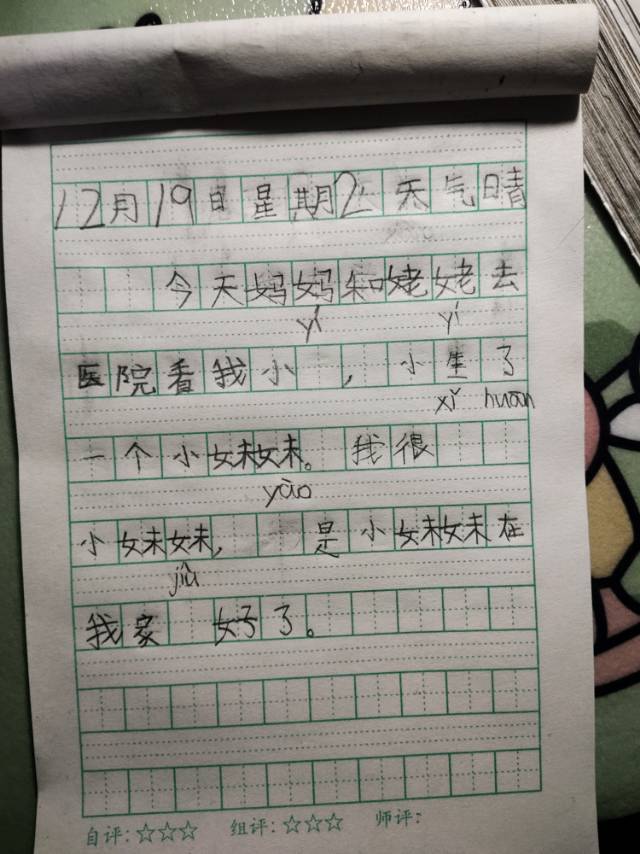 12月19日星期2天气晴
今天妈妈和姥姥去
yí yí
医院看我小 ，小 生了
xǐ huɑn
一个小妹妹。我很
yào
小妹妹， 是小妹妹在
jiù
我家 好了。
自评：☆☆☆ 组评：☆☆☆ 师评：